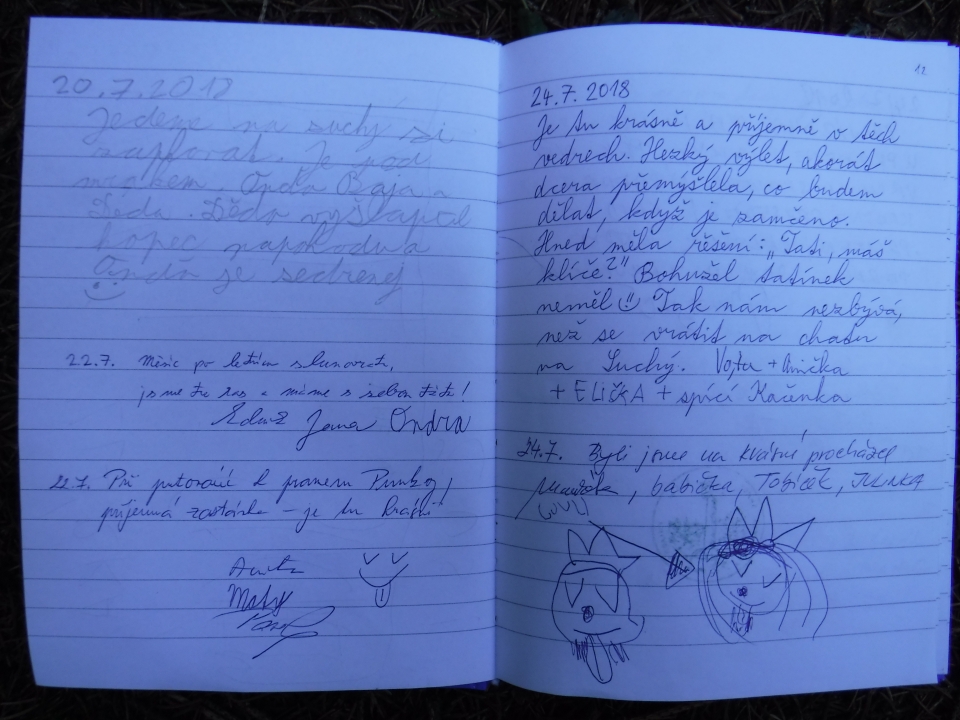 20.7.2018
Jedeme na suchý si
zaplavat. Je pod
mrakem. Onda Baja a
Děda. Děda vyšlapal
kopec napohodu a
Onda je sedrenej
22.7. Měsíc po letním slunovratu,
jsme tu zas a máme s sebou tátu!
Jana Ondra
22.7. Při putování k prameni Punkvy,
příjemná zastávka – je tu krásně!
Maty
12
24.7. 2018
Je tu krásně a příjemně v těch
vedrech. Hezký výlet, akorát
dcera přemýšlela, co budem
dělat, když je zamčeno.
Hned měla řěšení: „Tati, máš
klíče?" Bohužel tatínek
neměl Tak nám nezbývá,
než se vrátit na chatu
na Suchý. Vojta + Anička
+ ELIČKA + spící Kačenka
24.7. Byli jsme na krásné procházce
, babička, Tobíček, JULINKA